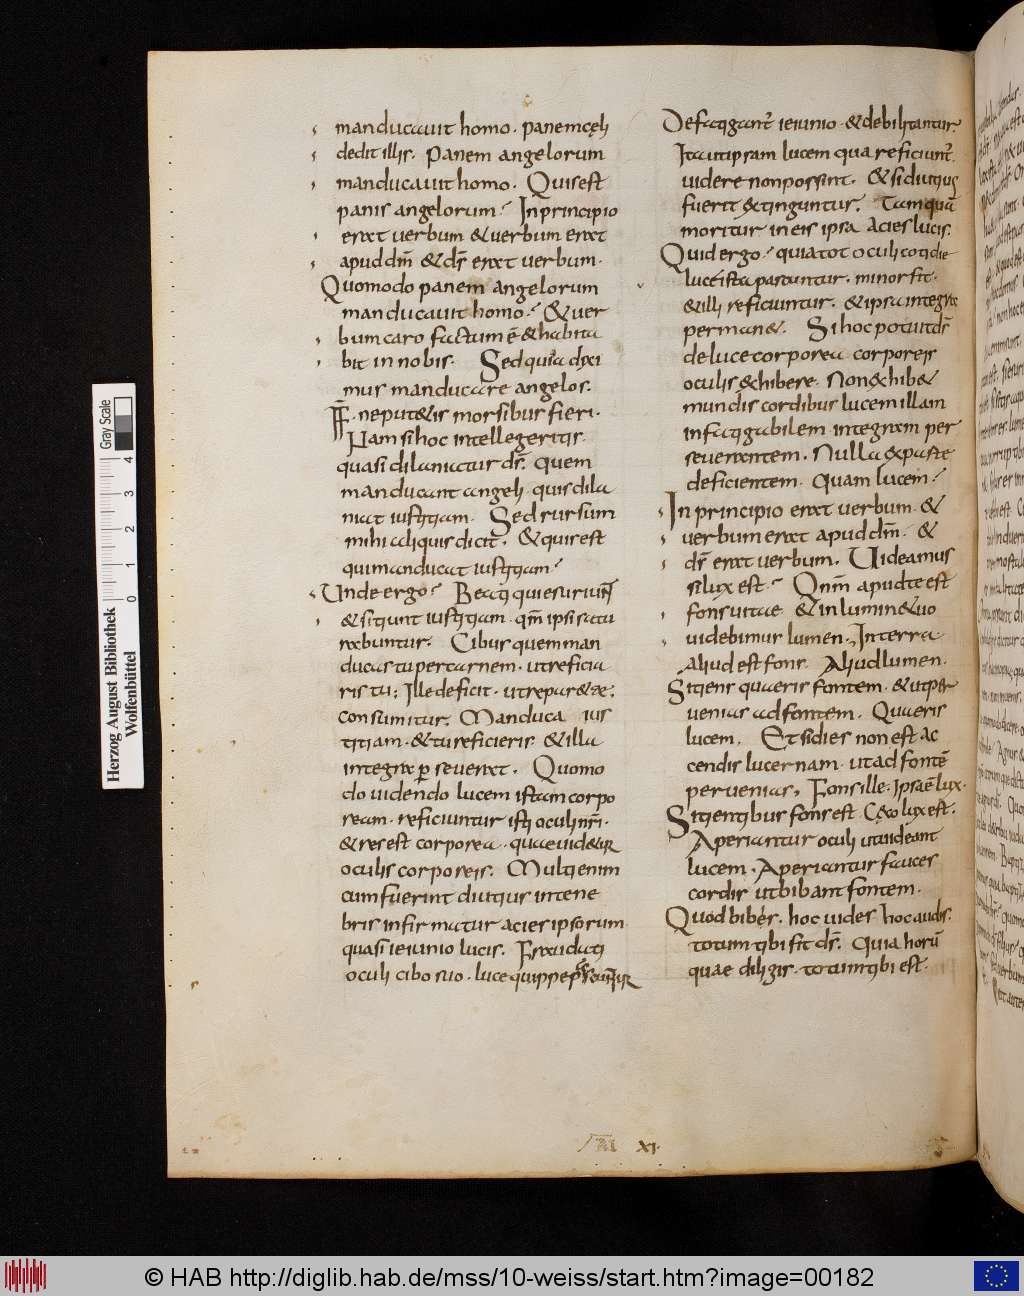 manducauit homo. panem cęli
dedit illis. Panem angelorum
manducauit homo. Quis est
panis angelorum? In principio
erat uerbum & uerbum erat
apud dm̄ & ds̄ erat uerbum.
Quomodo panem angelorum
manducauit homo? & uer
bum caro factum ē & habita
bit in nobis. Sed quia dixi
mus manducare angelos.
FF. ne putetis morsibus fieri.
Nam si hoc intellegeritis.
quasi dilaniatur ds̄. quem
manducant angeli. quis dila
niat iustitiam. Sed rursum
mihi aliquis dicit. & quis est
qui manducat iustitiam?
Unde ergo? Beati qui esuriunt
& sitiunt iustitiam. qm̄ ipsi satu
rabuntur. Cibus quem man
ducas tu per carnem. ut reficia
ris tu; Ille deficit. ut reparet te;
consumitur. Manduca ius
titiam. & tu reficieris. & illa
integra p seuerat. Quomo
do uidendo lucem istam corpo
ream. reficiuntur isti oculi nr̄i.
& res est corporea. quae uidetur
oculis corporeis. Multi enim
cum fuerint diutius in tene
bris infirmatur acies ipsorum
quasi ieiunio lucis. Fraudati
oculi cibo suo. luce quippe
Defatigant̄ ieiunio. & debilitantur.
Ita ut ipsam lucem qua reficiunt̄.
uidere non possint. & si diutius
fuerit extinguntur. Tamquā
moritur in eis ipsa acies lucis.
Quid ergo? quia tot oculi cotidie
luce ista pascuntur. minor fit.
& illi reficiuntur. & ipsa integra
permanet. Si hoc potuit ds̄
de luce corporea corporeis
oculis exhibere. Non exhibet
mundis cordibus lucem illam
infatigabilem integram per
seuerantem. Nulla ex parte
deficientem. Quam lucem?
In principio erat uerbum. &
uerbum erat apud dm̄. &
ds̄ erat uerbum. Uideamus
si lux est? Qnm̄ apud te est
fons uitae & in lumine tuo
uidebimur lumen. In terra
aliud est fons. Aliud lumen.
Sitiens quaeris fontem. & ut per
uenias ad fontem. Quaeris
lucem. Et si dies non est ac
cendis lucernam. ut ad fontē
peruenias, Fons ille. Ipsa ē lux.
Sitientibus fons est. Caeco lux est.
Aperiantur oculi ut uideant
lucem. Aperiantur fauces
cordis ut bibant fontem.
Quod bibes. hoc uides hoc audis.
totum tibi fit ds̄. Quia horū
quae diligis. totum tibi est.
XI.
Herzog August Bibliothek
Wolfenbüttel
0 1 2 3 4
Gray Scale
© HAB http://diglib.hab.de/mss/10-weiss/start.htm?image=00182